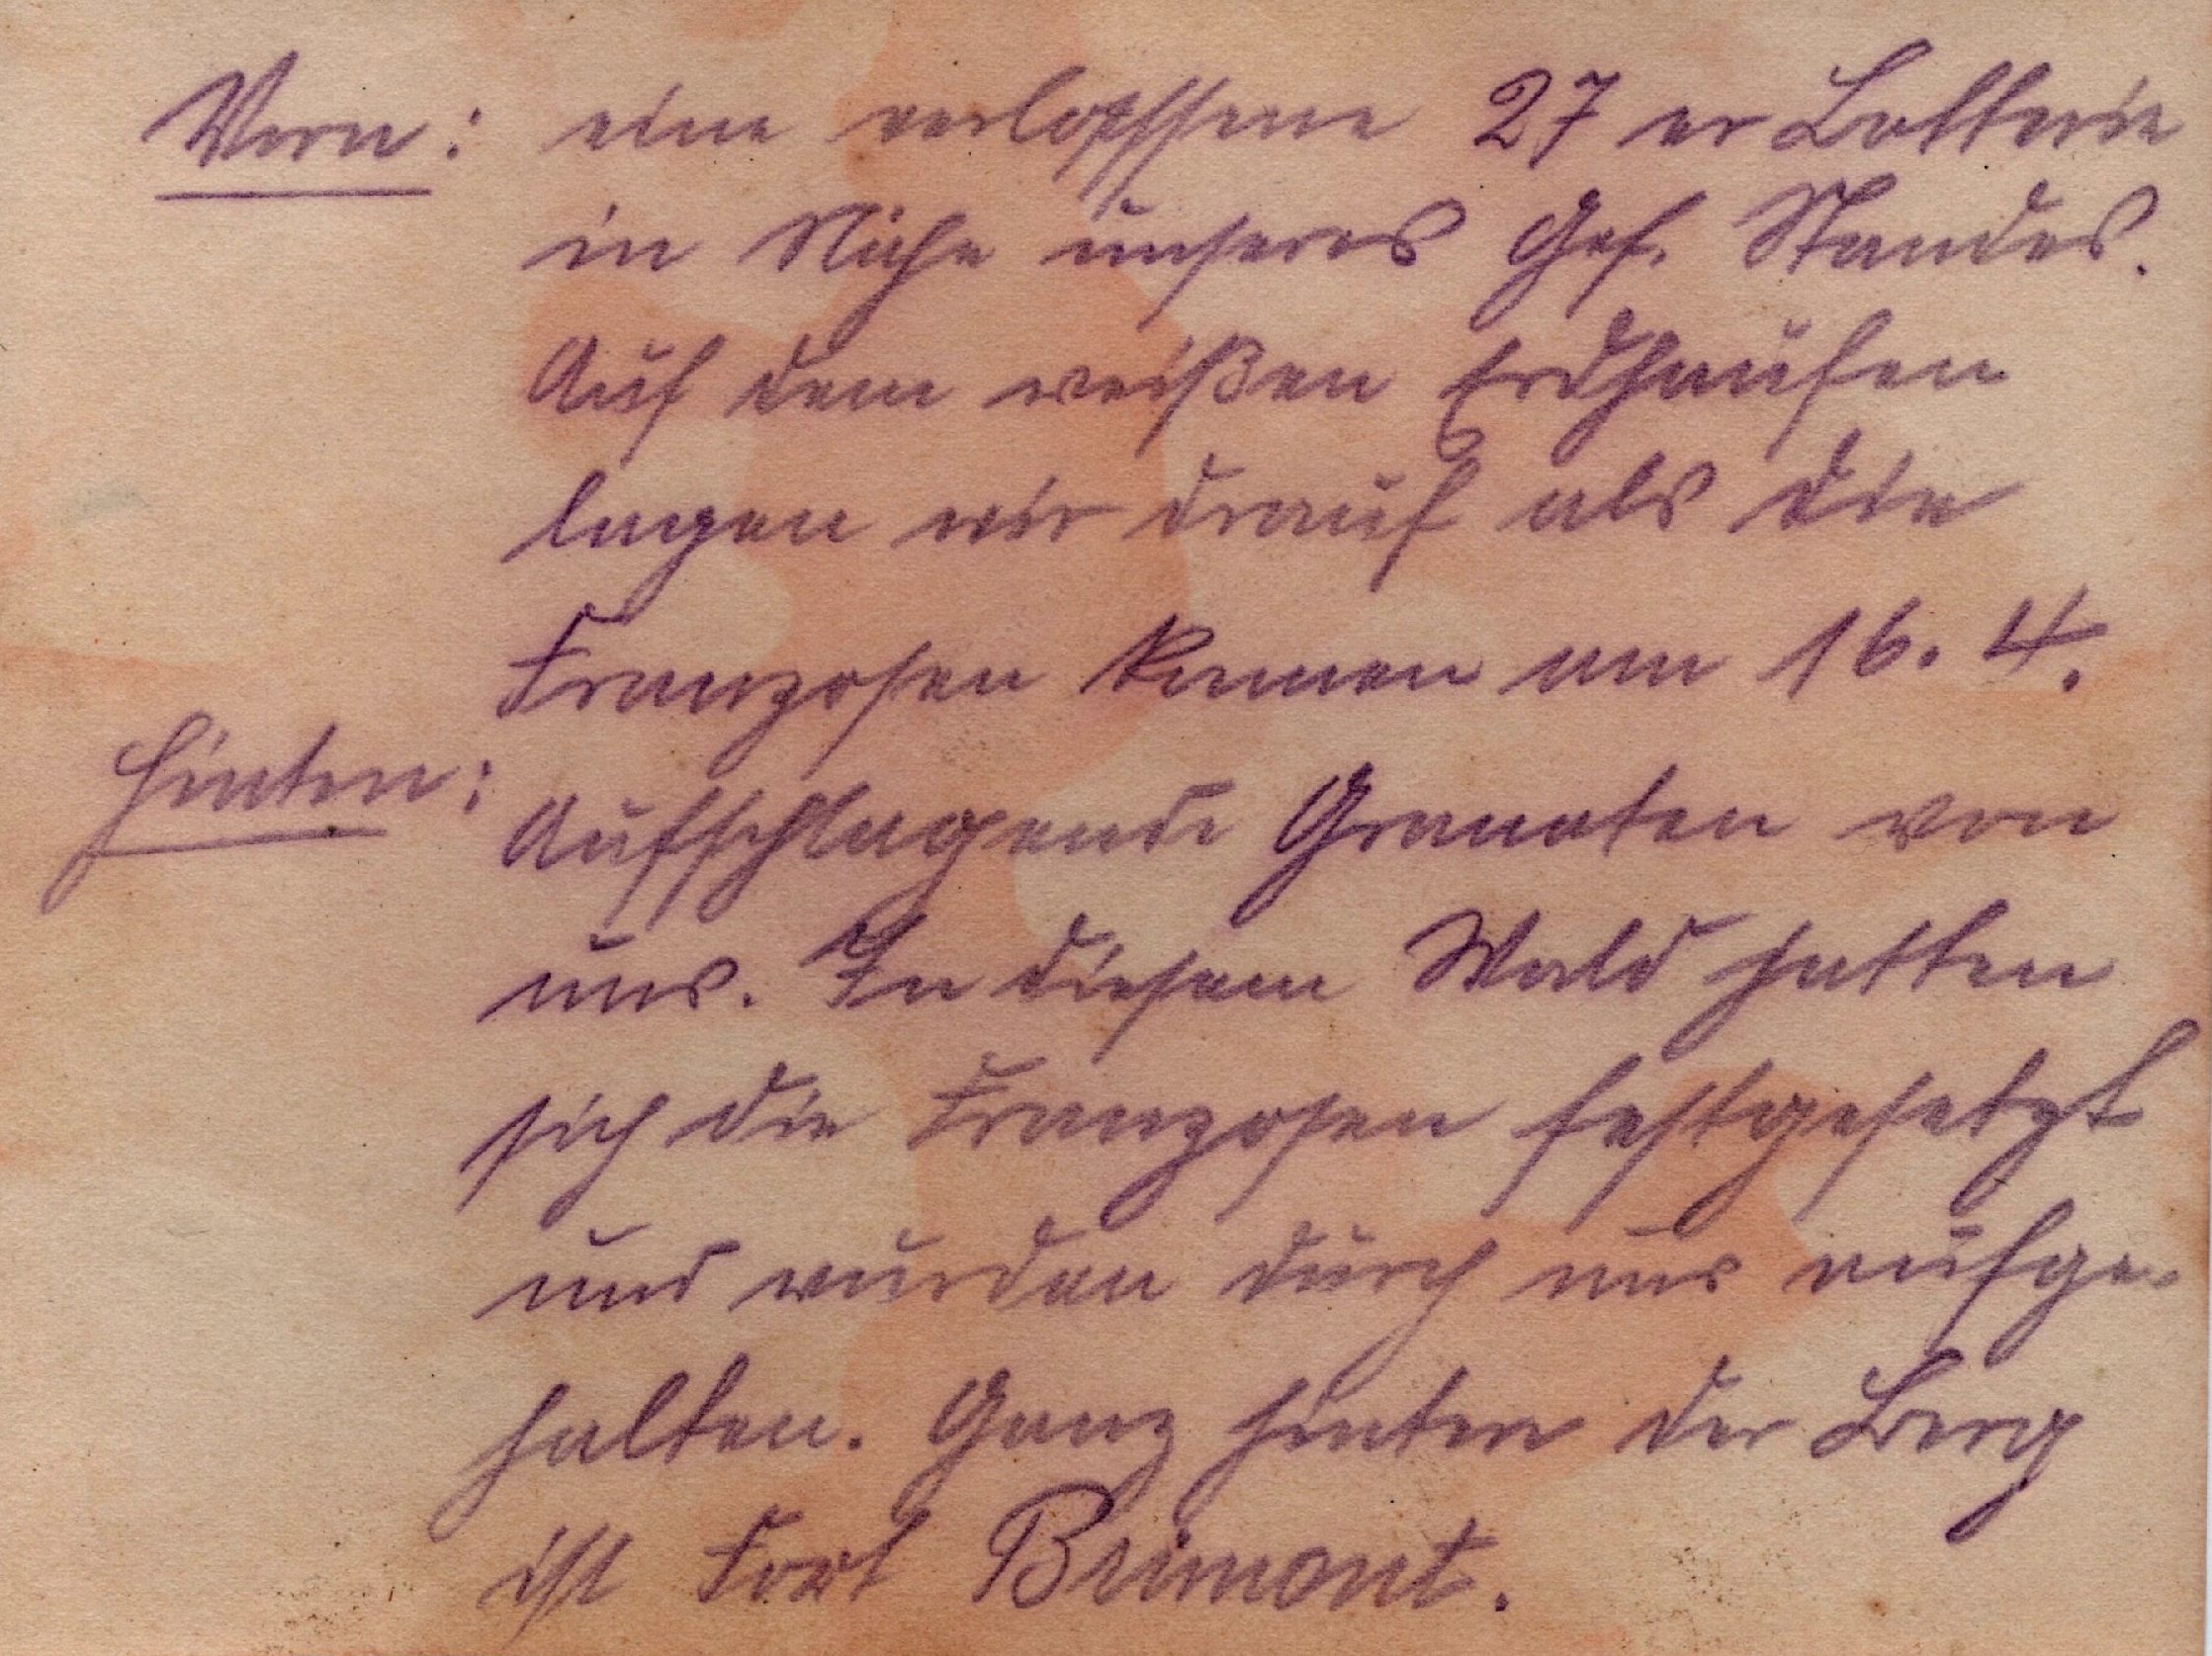 Vorn: eine verlassene 27 er Batterie
in Nähe unseres Gef. Standes.
Auf dem weißen Erdhaufen
lagen wir drauf als die
Franzosen kamen am 16. 4.
Hinten: Aufschlagende Granaten von
uns. In diesem Wald hatten
sich die Franzosen festgesetzt
und wurden durch uns aufge-
halten. Ganz hinten der Berg
ist Fort Brimont.